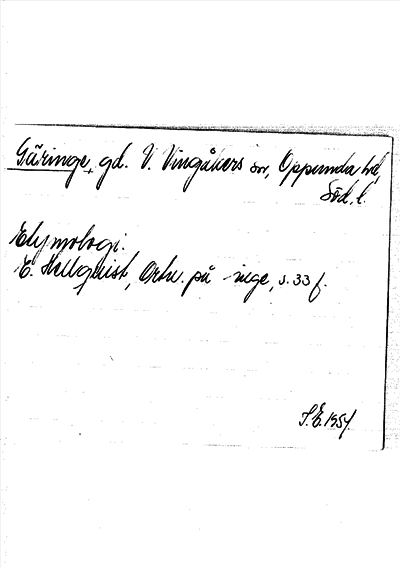 Gäringe, gd. V. Vingåkers sn, Oppunda hd,
Söd. l.
Etymologi:
E. Hellquist, Ortn. på -inge, s. 33 f.
S.E. 1954.